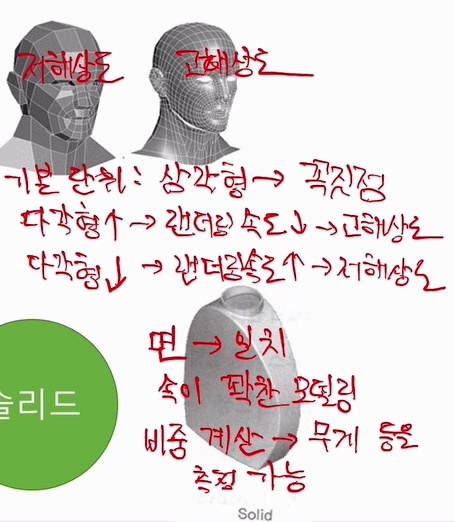 저해상도 고해상도
기본 단위: 삼각형→ 꼭짓점
다각형↑ → 랜더링 속도↓ →고해상도
다각형↓ → 랜더링속도↑ →저해상도
면 → 일치
솔리드
속이 꽉찬 모델링
비중 계산 → 무게 등을
측정 가능
Solid